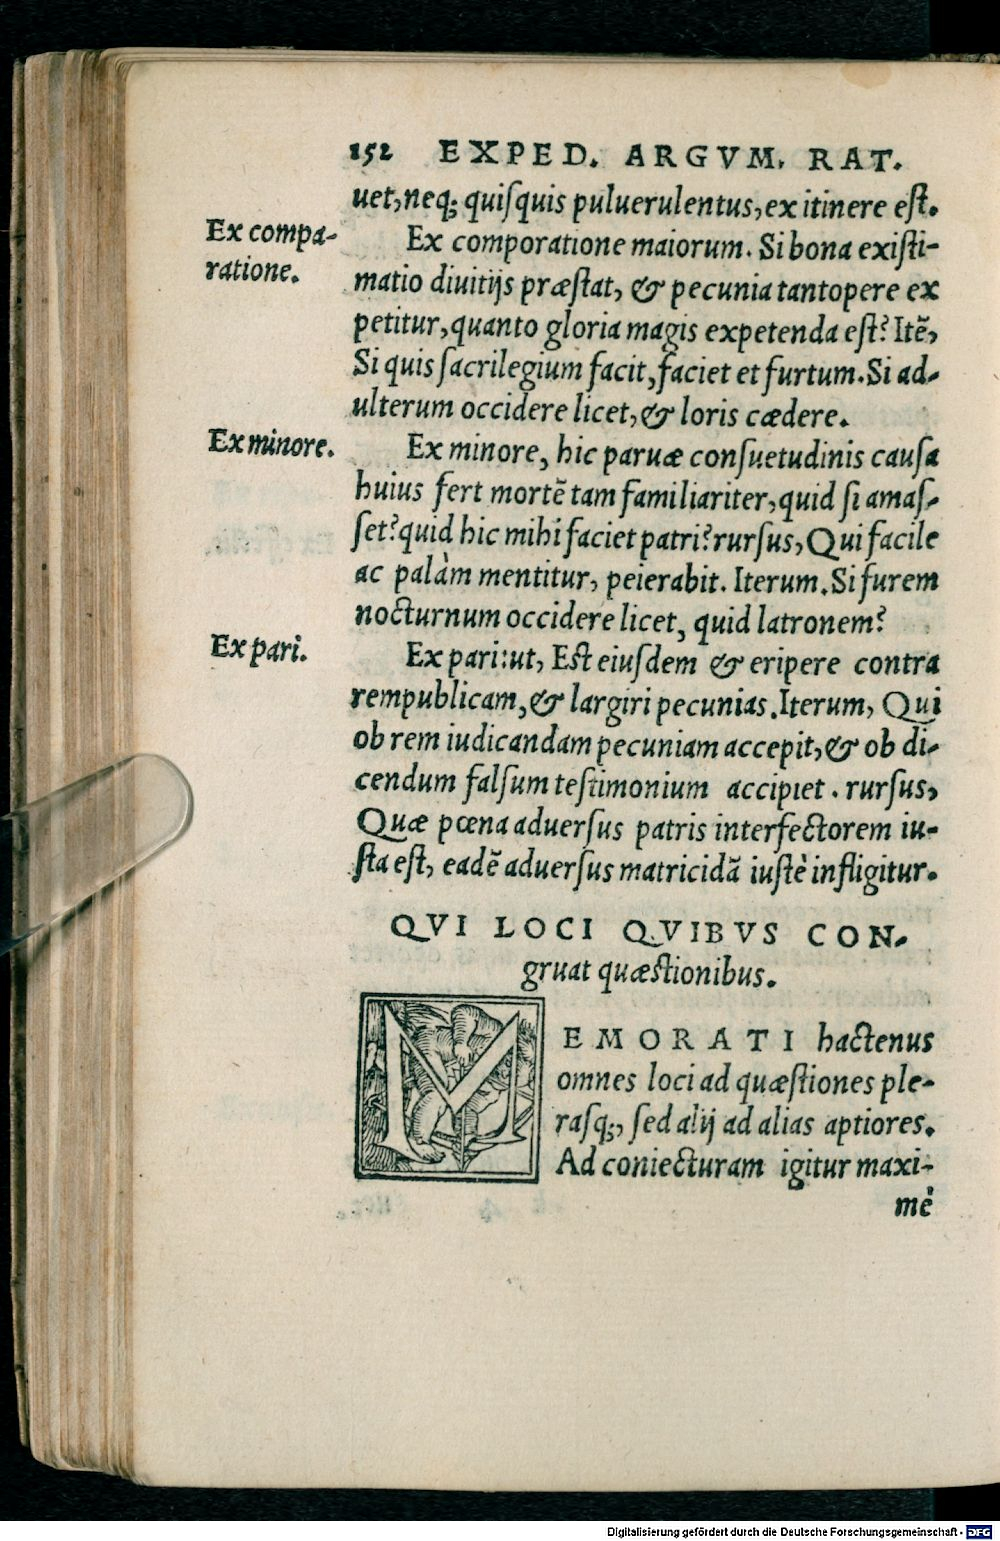 152 EXPED. ARGVM. RAT.
uet, neq; quiſquis puluerulentus, ex itinere eſt.
Ex compa-
ratione.
Ex comporatione maiorum. Si bona exiſti-
matio diuitijs præſtat, & pecunia tantopere ex
petitur, quanto gloria magis expetenda eſt? Itē,
Si quis ſacrilegium facit, faciet et furtum. Si ad-
ulterum occidere licet, & loris cædere.
Ex minore.
Ex minore, hic paruæ conſuetudinis cauſa
huius fert mortē tam familiariter, quid ſi amaſ-
ſet? quid hic mihi faciet patri? rurſus, Qui facile
ac palàm mentitur, peierabit. Iterum. Si furem
nocturnum occidere licet, quid latronem?
Ex pari.
Ex pari: ut, Eſt eiuſdem & eripere contra
rempublicam, & largiri pecunias. Iterum, Qui
ob rem iudicandam pecuniam accepit, & ob di-
cendum falſum teſtimonium accipiet. rurſus,
Quæ pœna aduerſus patris interfectorem iu-
ſta eſt, eadē aduerſus matricidā iuſtè infligitur.
QVI LOCI QVIBVS CON-
gruat quæſtionibus.
MEMORATI hactenus
omnes loci ad quæſtiones ple-
raſq;, ſed alij ad alias aptiores.
Ad coniecturam igitur maxi-
mè
Digitalisierung gefördert durch die Deutsche Forschungsgemeinschaft - DFG